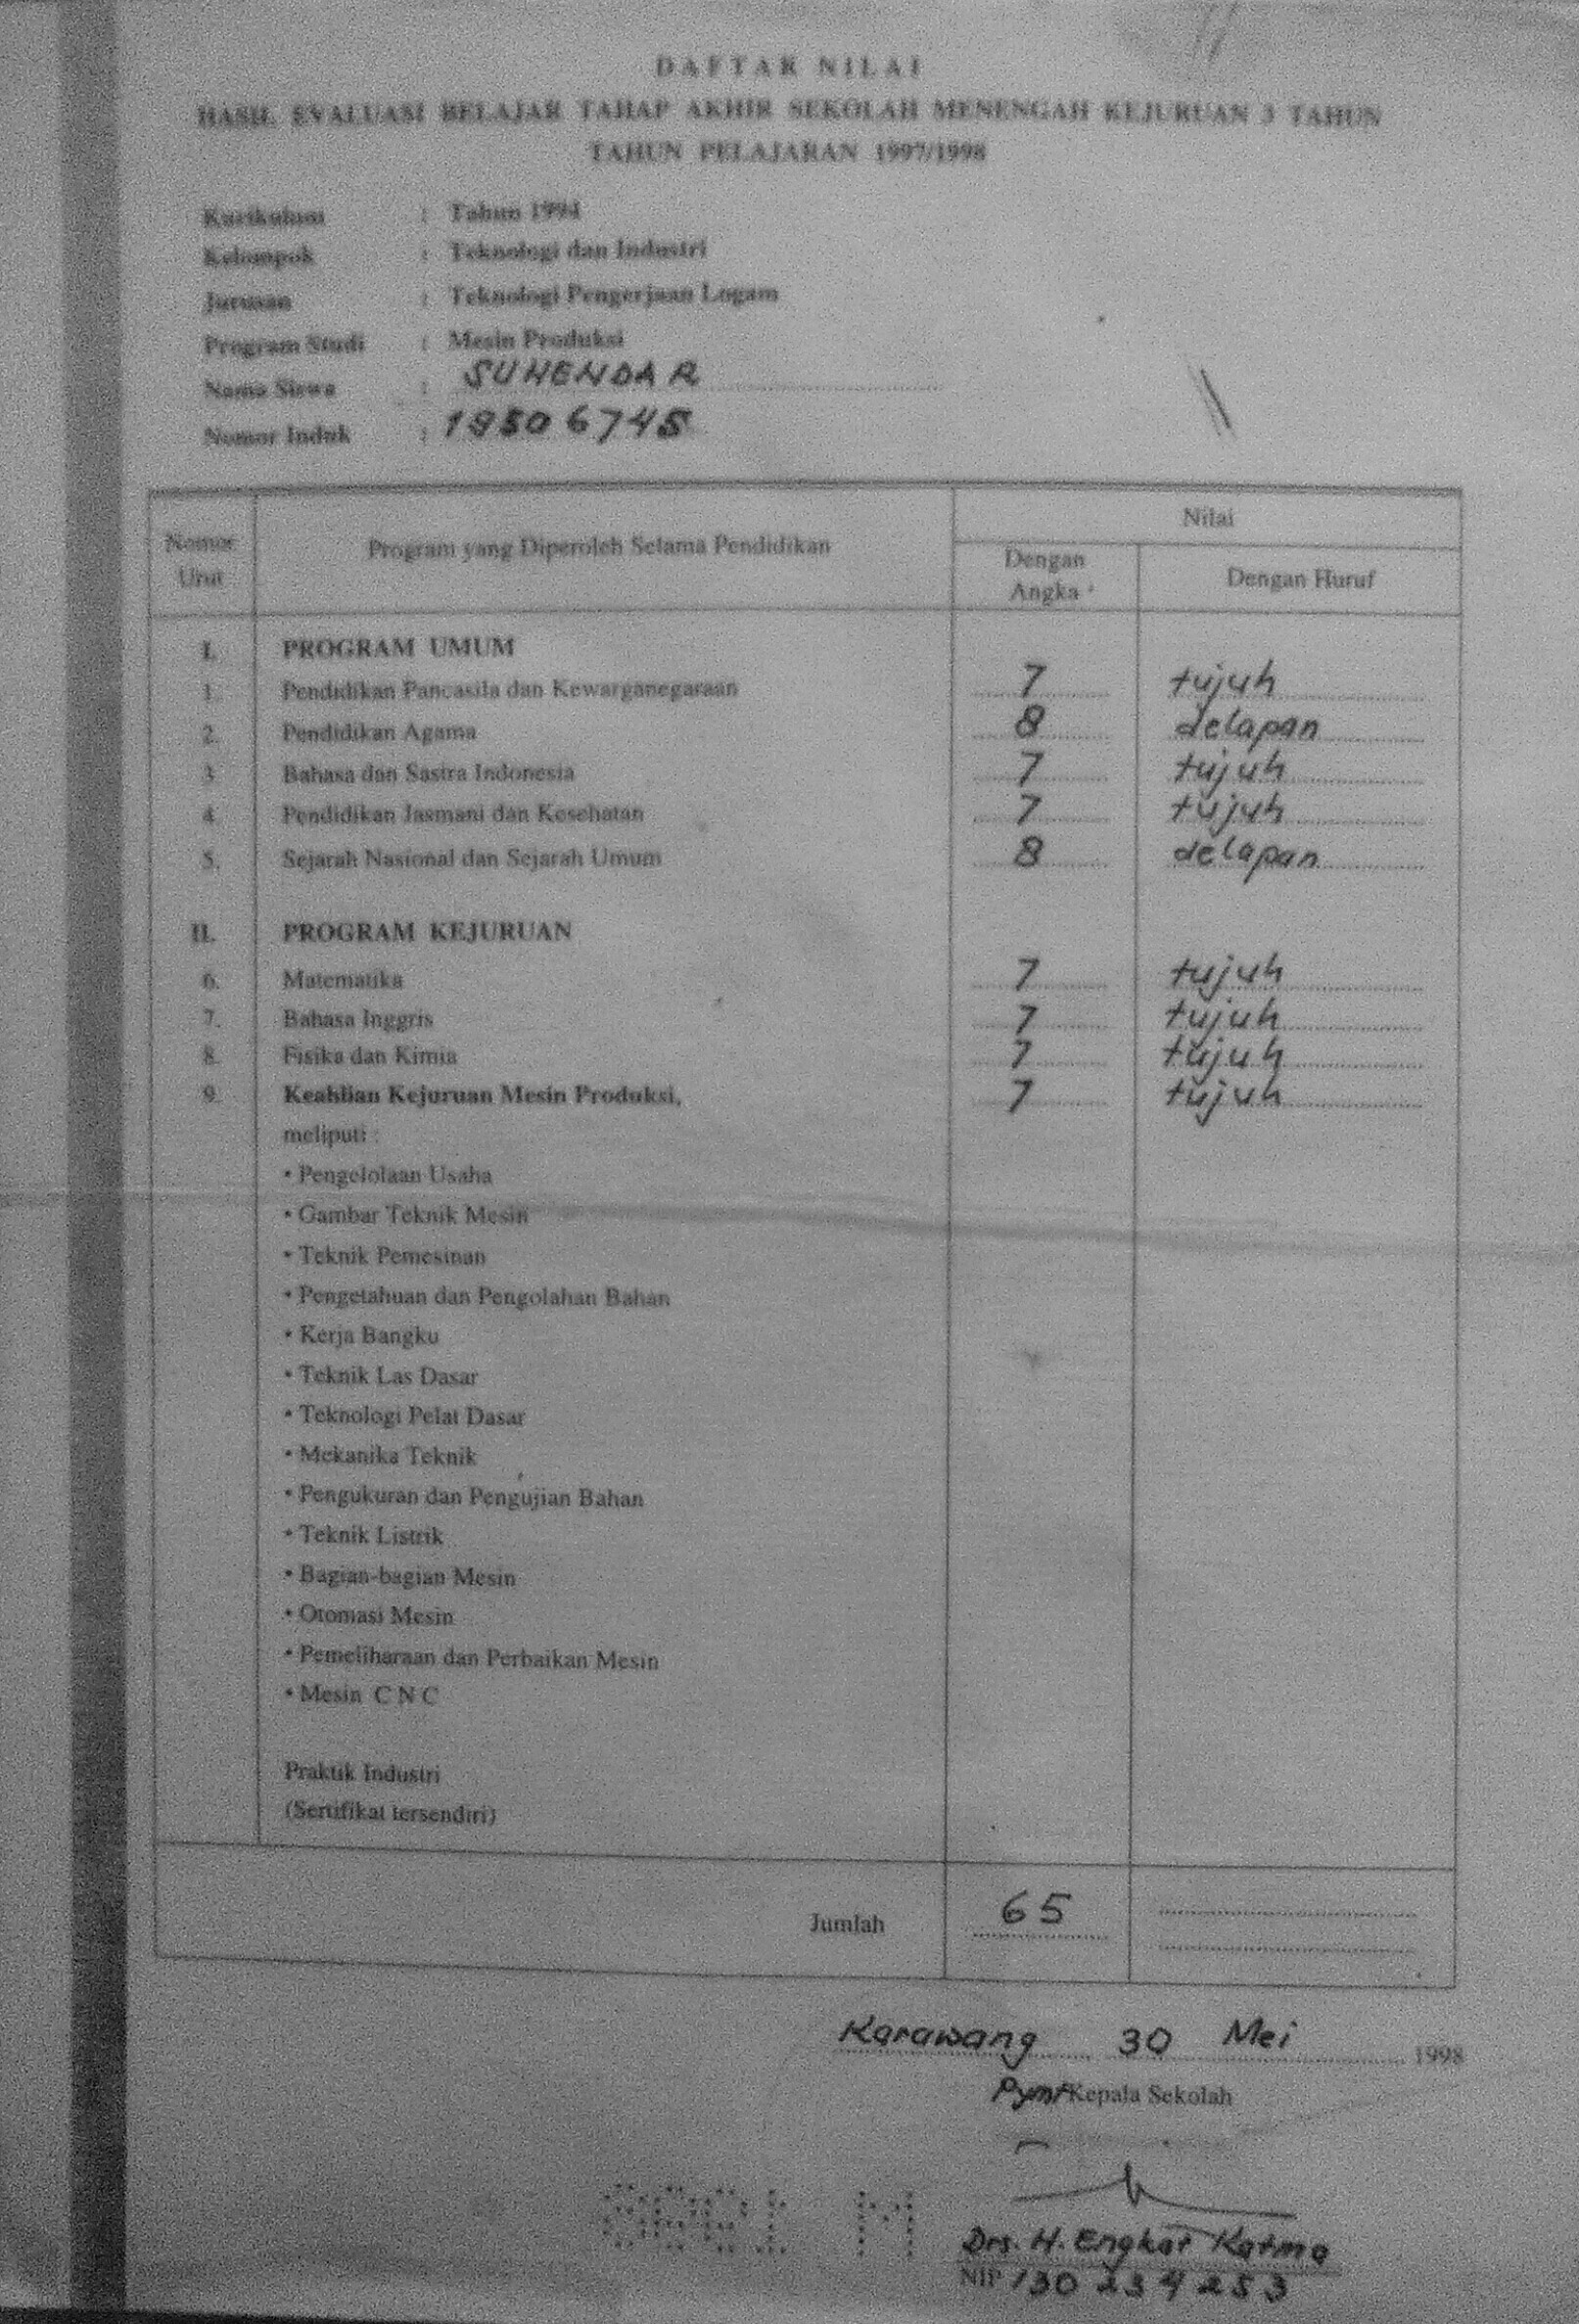 DAFTAR NILAI
HASIL EVALUASI BELAJAR TAHAP AKHIR SEKOLAH MENENGAH KEJURUAN 3 TAHUN
TAHUN PELAJARAN 1997/1998
Kurikulum : Tahun 1994
Kelompok : Teknologi dan Industri
Jurusan : Teknologi Pengerjaan Logam
Program Studi : Mesin Produksi
Nama Siswa : SUHENDAR
Nomor Induk :
Nomor Urut Program yang Diperoleh Selama Pendidikan Nilai
Dengan Angka Dengan Huruf
I. PROGRAM UMUM
1. Pendidikan Pancasila dan Kewarganegaraan 7 tujuh
2. Pendidikan Agama 8 delapan
3. Bahasa dan Sastra Indonesia 7 tujuh
4. Pendidikan Jasmani dan Kesehatan 7 tujuh
5. Sejarah Nasional dan Sejarah Umum 8 delapan
II. PROGRAM KEJURUAN
6. Matematika 7 tujuh
7. Bahasa Inggris 7 tujuh
8. Fisika dan Kimia 7 tujuh
9. Keahlian Kejuruan Mesin Produksi, 7 tujuh
meliputi :
• Pengelolaan Usaha
• Gambar Teknik Mesin
• Teknik Pemesinan
• Pengetahuan dan Pengolahan Bahan
• Kerja Bangku
• Teknik Las Dasar
• Teknologi Pelat Dasar
• Mekanika Teknik
• Pengukuran dan Pengujian Bahan
• Teknik Listrik
• Bagian-bagian Mesin
• Otomasi Mesin
• Pemeliharaan dan Perbaikan Mesin
• Mesin C N C
Praktik Industri
(Sertifikat tersendiri)
Jumlah 65
Karawang 30 Mei 1998
Pymt Kepala Sekolah
Drs. H. Engkat Katma
NIP 130 234 253